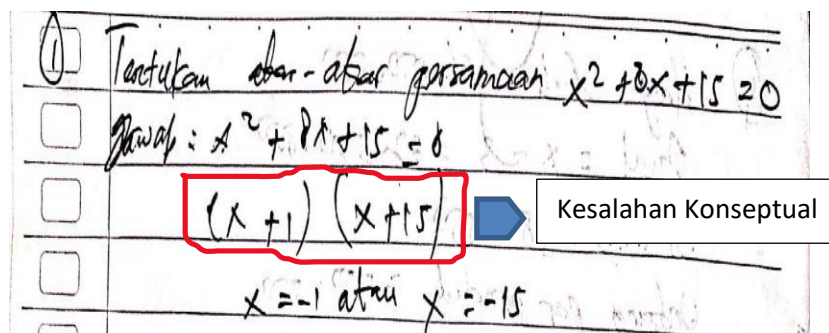 ① Tentukan akar-akar persamaan x² + 8x + 15 = 0
Jawab : x² + 8x + 15 = 0
(x + 1) (x + 15)
Kesalahan Konseptual
x = -1 atau x = -15